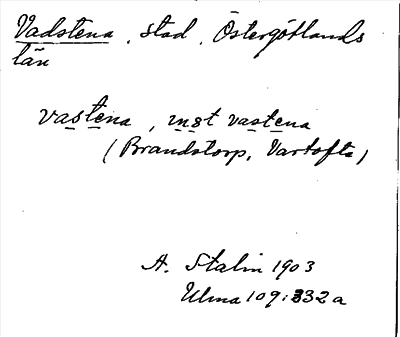 Vadstena, stad, Östergötlands
län
vastena, inst vastena
(Brandstorp, Vartofta)
A. Stalin 1903
Ulma 109:332a